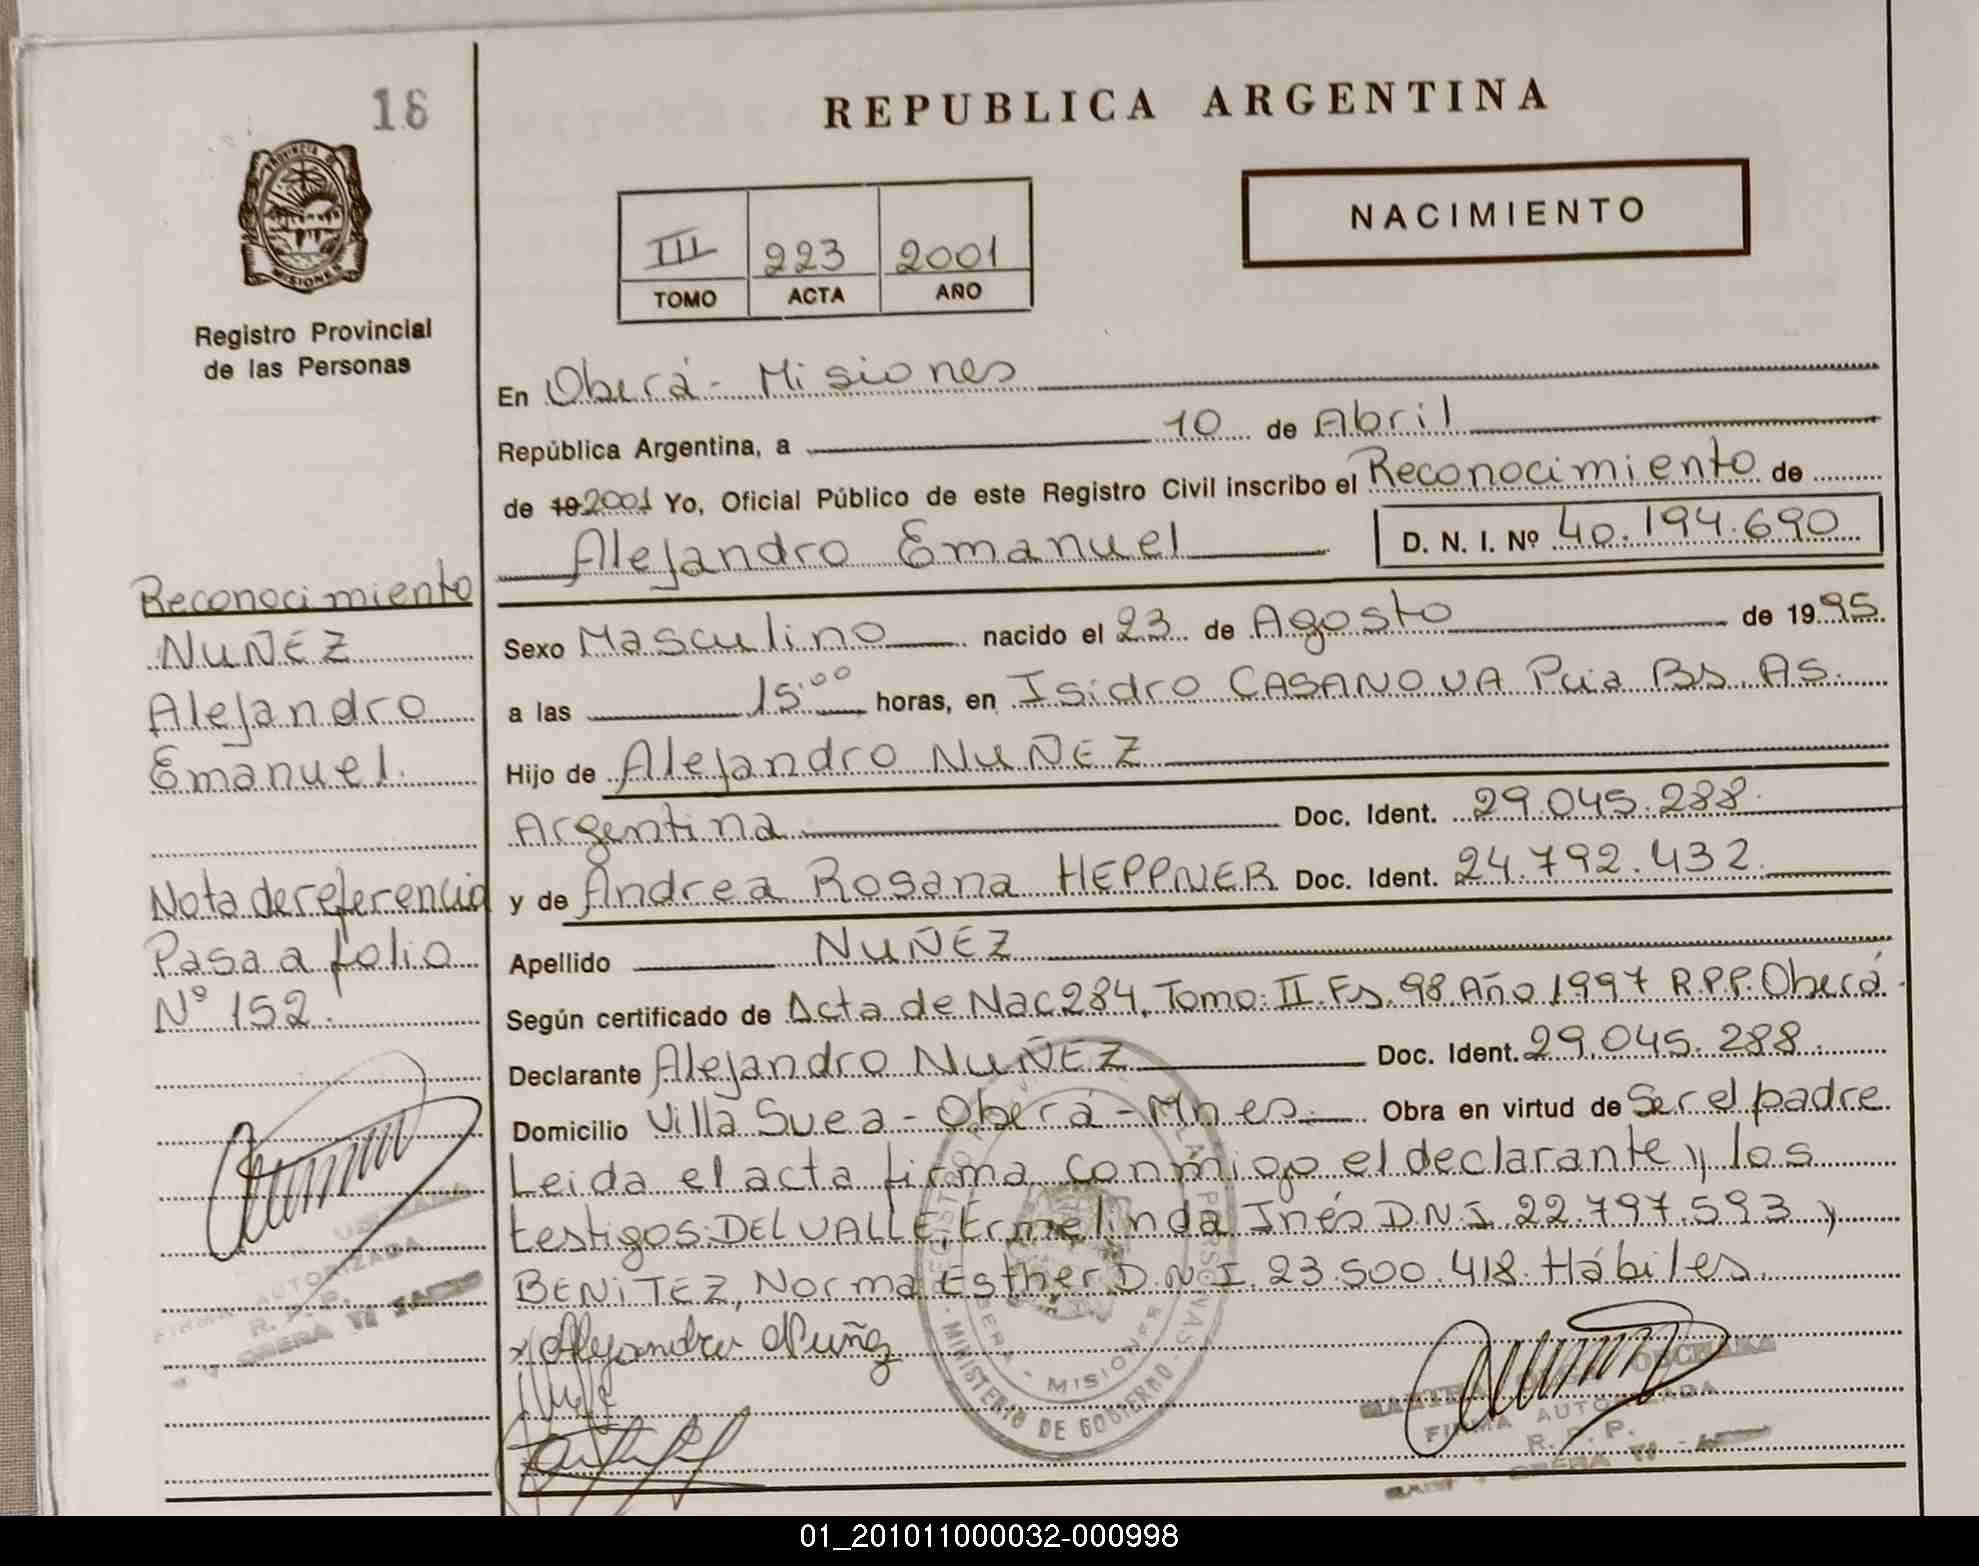 18
REPUBLICA ARGENTINA
NACIMIENTO
III 223 2001
TOMO ACTA AÑO
PROVINCIA DE MISIONES
Registro Provincial
de las Personas
En Oberá - Misiones
República Argentina, a 10 de Abril
de 19 2001 Yo, Oficial Público de este Registro Civil inscribo el Reconocimiento de
Alejandro Emanuel D. N. I. Nº 40.194.690
Sexo Masculino nacido el 23 de Agosto de 1995
a las 15:00 horas, en Isidro CASANOVA Pcia Bs. As.
Hijo de Alejandro NUÑEZ
Argentina Doc. Ident. 29.045.288.
y de Andrea Rosana HEPPNER Doc. Ident. 24.792.432.
Apellido NUÑEZ
Según certificado de Acta de Nac 284, Tomo: II. Fs. 98 Año 1997 R.P.P. Oberá.
Declarante Alejandro NUÑEZ Doc. Ident. 29.045.288.
Domicilio Villa Svea - Oberá - Mnes. Obra en virtud de Ser el padre
Leida el acta firma conmigo el declarante y los
testigos: DEL VALLE, Ermelinda Inés D.N.I. 22.797.593 y
BENITEZ, Norma Esther D.N.I. 23.500.418. Hábiles.
Alejandro Nuñez
Reconocimiento
NUÑEZ
Alejandro
Emanuel.
Nota de referencia
Pasa a folio
Nº 152.
FIRMA AUTORIZADA
R. P. P.
OBERA
MINISTERIO DE GOBIERNO
MISIONES
FIRMA AUTORIZADA
R. P. P.
OBERA
01_201011000032-000998